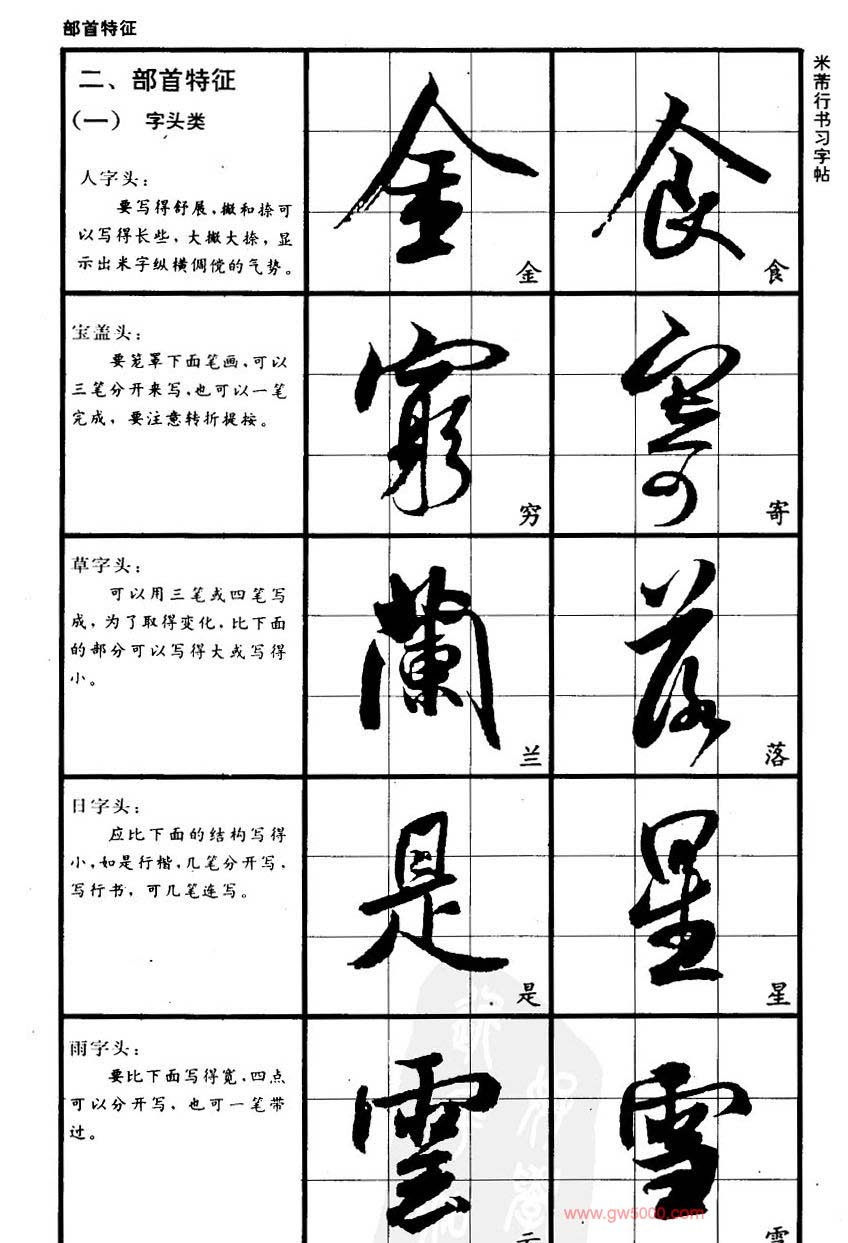 部首特征
米芾行书习字帖
二、部首特征
（一） 字头类
人字头：
要写得舒展，撇和捺可
以写得长些，大撇大捺，显
示出米字纵横倜傥的气势。
金
金
食
食
宝盖头：
要笼罩下面笔画，可以
三笔分开来写，也可以一笔
完成，要注意转折提按。
窮
穷
寄
寄
草字头：
可以用三笔或四笔写
成，为了取得变化，比下面
的部分可以写得大或写得
小。
蘭
兰
落
落
日字头：
应比下面的结构写得
小，如是行楷，几笔分开写，
写行书，可几笔连写。
是
是
星
星
雨字头：
要比下面写得宽，四点
可以分开写，也可一笔带
过。
雲
云
雪
雪
www.gw5000.com